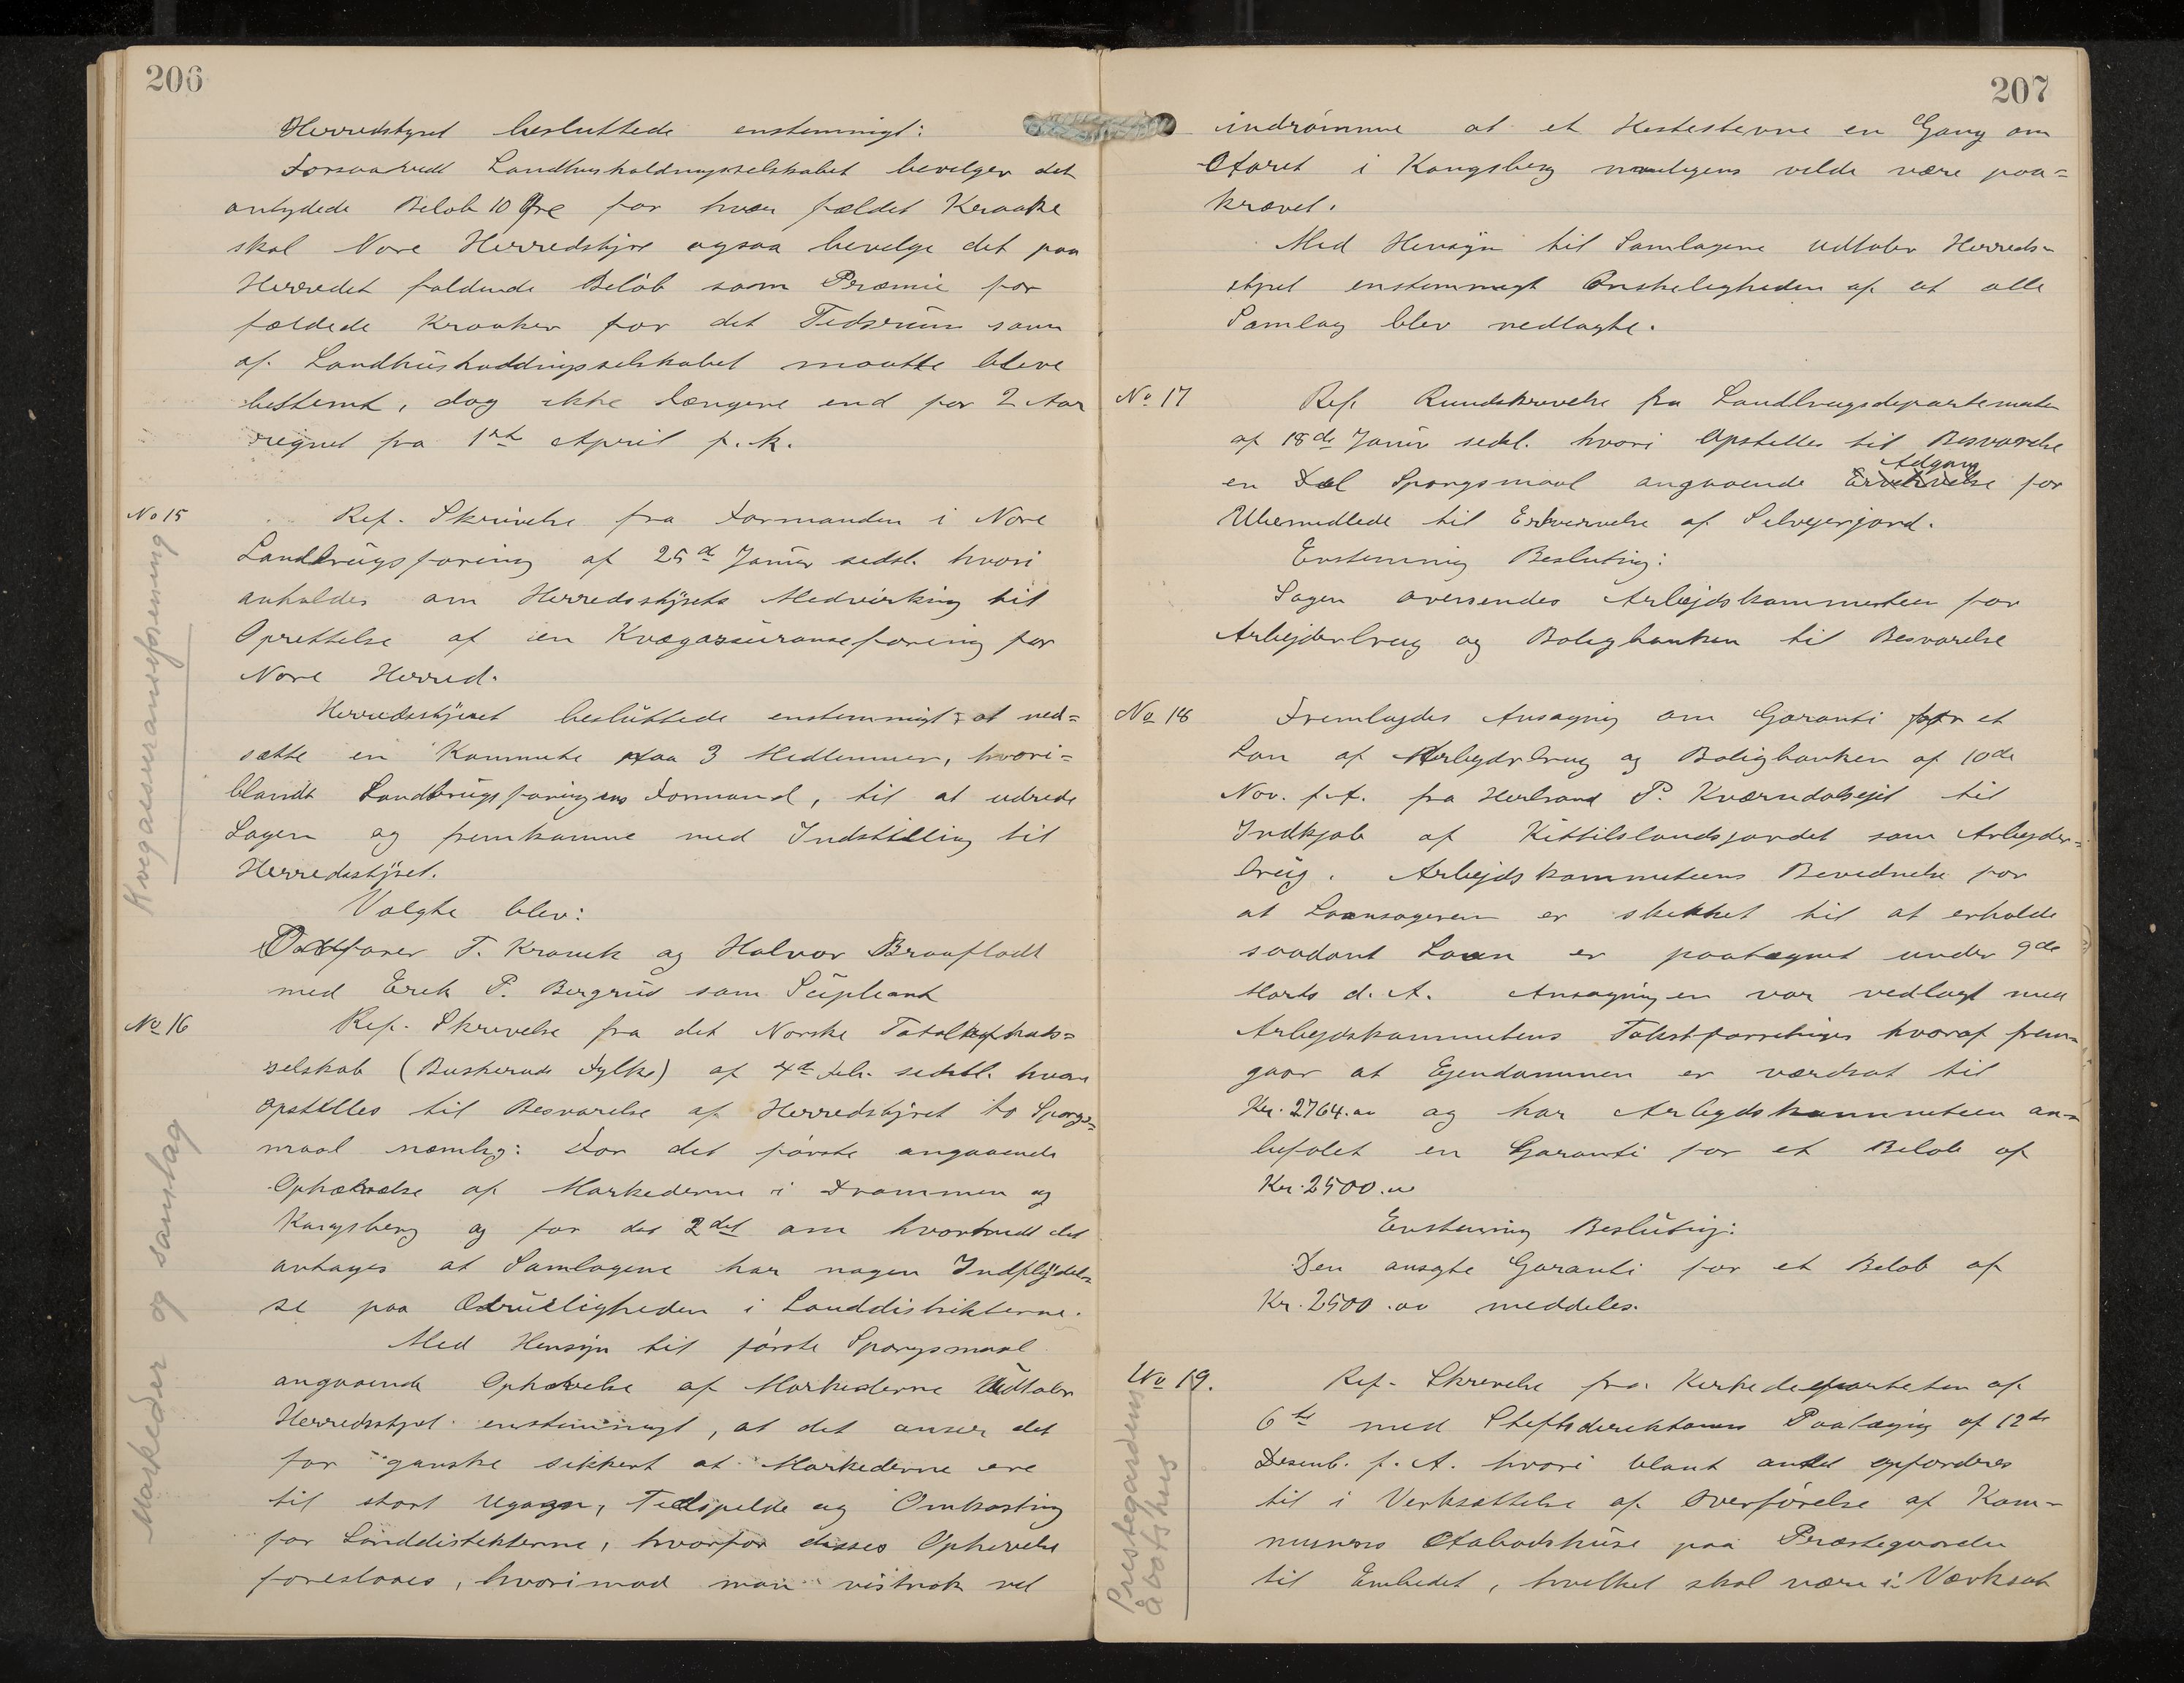 206
Herredstyret besluttede enstemmigt:
Forsaavidt Landhusholdningsselskabet bevilger det
antydede Beløb 10 Øre for hver fældet Kraake
skal Nore Herredstyre ogsaa bevilge det paa
Herredet faldende Beløb som Præmie for
fældede Kraaker for det Tidsrum som
af Landhusholdingsselskabet maatte bleve
bestemt, dog ikke længere end for 2 Aar
regnet fra 1st April f. k.
No 15
Kvegassuranseforening
Ref. Skrivelse fra Formanden i Nore
Landbrugsforening af 25d Januar sidstl. hvori
anholdes om Herredsstyrets Medvirking til
Oprettelse af en Kvægassuranseforening for
Nore Herred.
Herredsstyret besluttede enstemmigt at ned=
sætte en Kommite paa 3 Medlemmer, hvori=
blandt Landbrugsforingens Formand, til at udrede
Sagen og fremkomme med Indstilling til
Herredsstyret.
Valgte blev:
T. Kravik og Halvor Braaflodt
med Erik P. Bergrud som Supleant
No 16
Markeder og samlag
Ref. Skrivelse fra det Norske Totalafholds=
selskab (Buskeruds Fylke) af 4d Feb. sidstl. hvori
opstilles til Besvarelse af Herredstyret to Spørgs=
maal nemlig: For det første angaaende
Ophævelse af Markederne i Drammen og
Kongsberg og for det 2det om hvorvidt det
antages at Samlagene har nogen Indflydel=
se paa Ædrueligheden i Landdistrikterne.
Med Hensyn til første Spørgsmaal
angaaende Ophævelse af Markederne Udtaler
Herredsstyret enstemmigt, at det anser det
for ganske sikkert at Markederne ere
til stort Ugagn, Tidspilde og Omkosting
for Landdistrikterne, hvorfor disses Ophevelse
foreslaaes, hvorimod man vistnok vel
207
indrømme at et Hestestevne en Gang om
Aaret i Kongsberg muligens vilde være paa=
krævet.
Med Hensyn til Samlagene udtaler Herreds=
styret enstemmigt Ønskeligheden af at alle
Samlag blev nedlagte.
No 17
Ref Rundskrivelse fra Landbrugsdepartementet
af 18de Januar sidstl. hvori Opstilles til Besvarelse
en Del Spørgsmaal angaaende Adgang for
Ubemidlede til Erhvervelse af Selvejerjord.
Enstemmig Beslutning:
Sagen oversendes Arbejdskommiteen for
Arbejderbrug og Boligbanken til Besvarelse
No 18
Fremlagdes Ansøgning om Garanti for et
Lan af Arbejderbrug og Boligbanken af 10de
Nov. f.A. fra Herbrand P. Kværndalsejet til
Indkjøb af Kittilslandsjordet som Arbejder=
brug. Arbejdskommiteens Bevidnelse for
at Laansøgeren er skikket til at erholde
saadant Laan er paategnet under 9de
Marts d. A. Ansøgningen var vedlagt med
Arbejdskommitens Takstforretnings hvoraf frem=
gaar at Ejendommen er værdsat til
Kr. 2764.00 og har Arbejdskommiteen an=
befalet en Garanti for et Beløb af
Kr. 2500.00
Enstemmig Beslutning:
Den ansøgte Garanti for et Beløb af
Kr. 2500.00 meddeles.
No 19.
Prestegardens
åbotshus
Ref. Skrivelse fra Kirkedepartetet af
6te med Stiftsdirektionens Paategning af 12te
Desemb. f. A. hvori blant andet opfordres
til i Verksættelse af Overførelse af Kom=
munens Aabodshuse paa Præstegaarden
til Embedet, hvilket skal være i Værksat